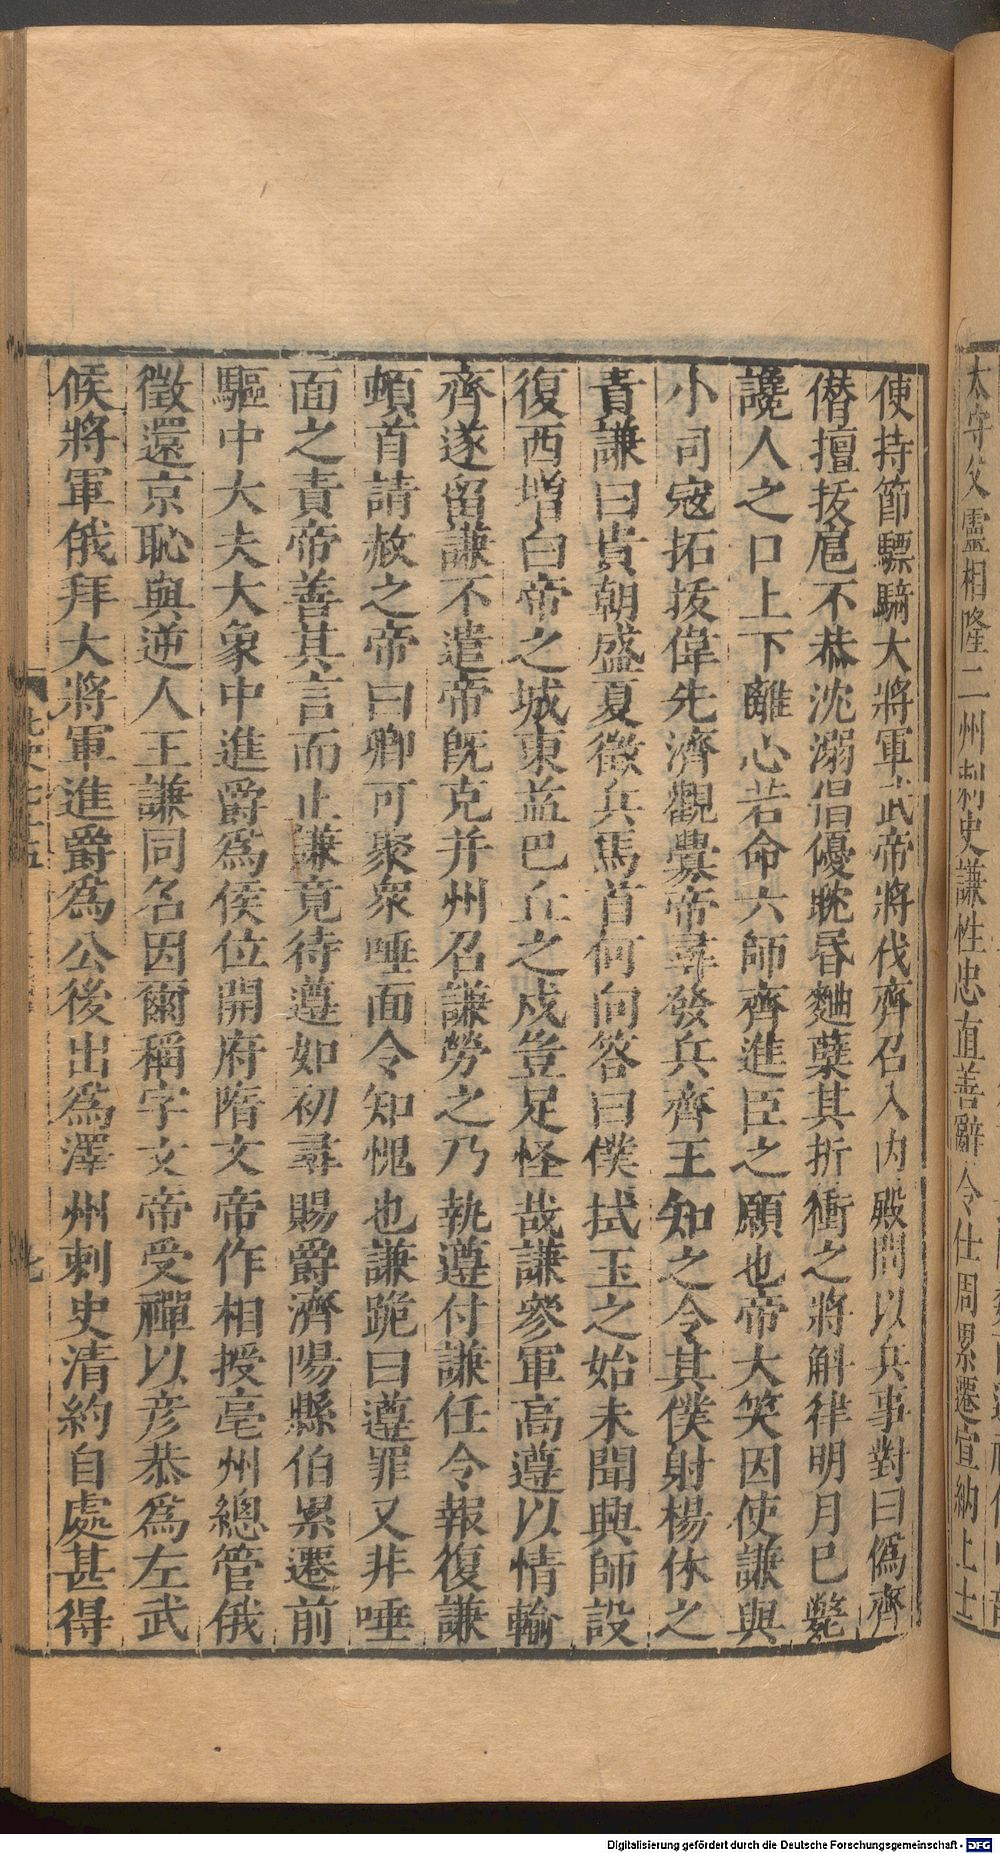 太守父靈相隆二州刺史謙性忠直善辭令仕周累遷宣納上士
使持節驃騎大將軍武帝將伐齊召入内殿問以兵事對曰僞齊
僭擅拔扈不恭沈溺倡優耽昬麯糵其折衝之將斛律明月已斃
讒人之口上下離心若命六師齊進臣之願也帝大笑因使謙與
小司寇拓拔偉先濟觀釁帝尋發兵齊王知之令其僕射楊休之
責謙曰貴朝盛夏徵兵馬首何向答曰僕拭玉之始未聞興師設
復西增白帝之城東益巴丘之戍豈足怪哉謙參軍高遵以情輸
齊遂留謙不遣帝既克并州召謙勞之乃執遵付謙任令報復謙
頓首請赦之帝曰卿可聚衆唾面令知愧也謙跪曰遵罪又非唾
面之責帝善其言而止謙竟待遵如初尋賜爵濟陽縣伯累遷前
驅中大夫大象中進爵爲侯位開府隋文帝作相授亳州總管俄
徵還京恥與逆人王謙同名因爾稱字文帝受禪以彦恭爲左武
候將軍俄拜大將軍進爵爲公後出爲澤州刺史清約自處甚得
Digitalisierung gefördert durch die Deutsche Forschungsgemeinschaft - DFG